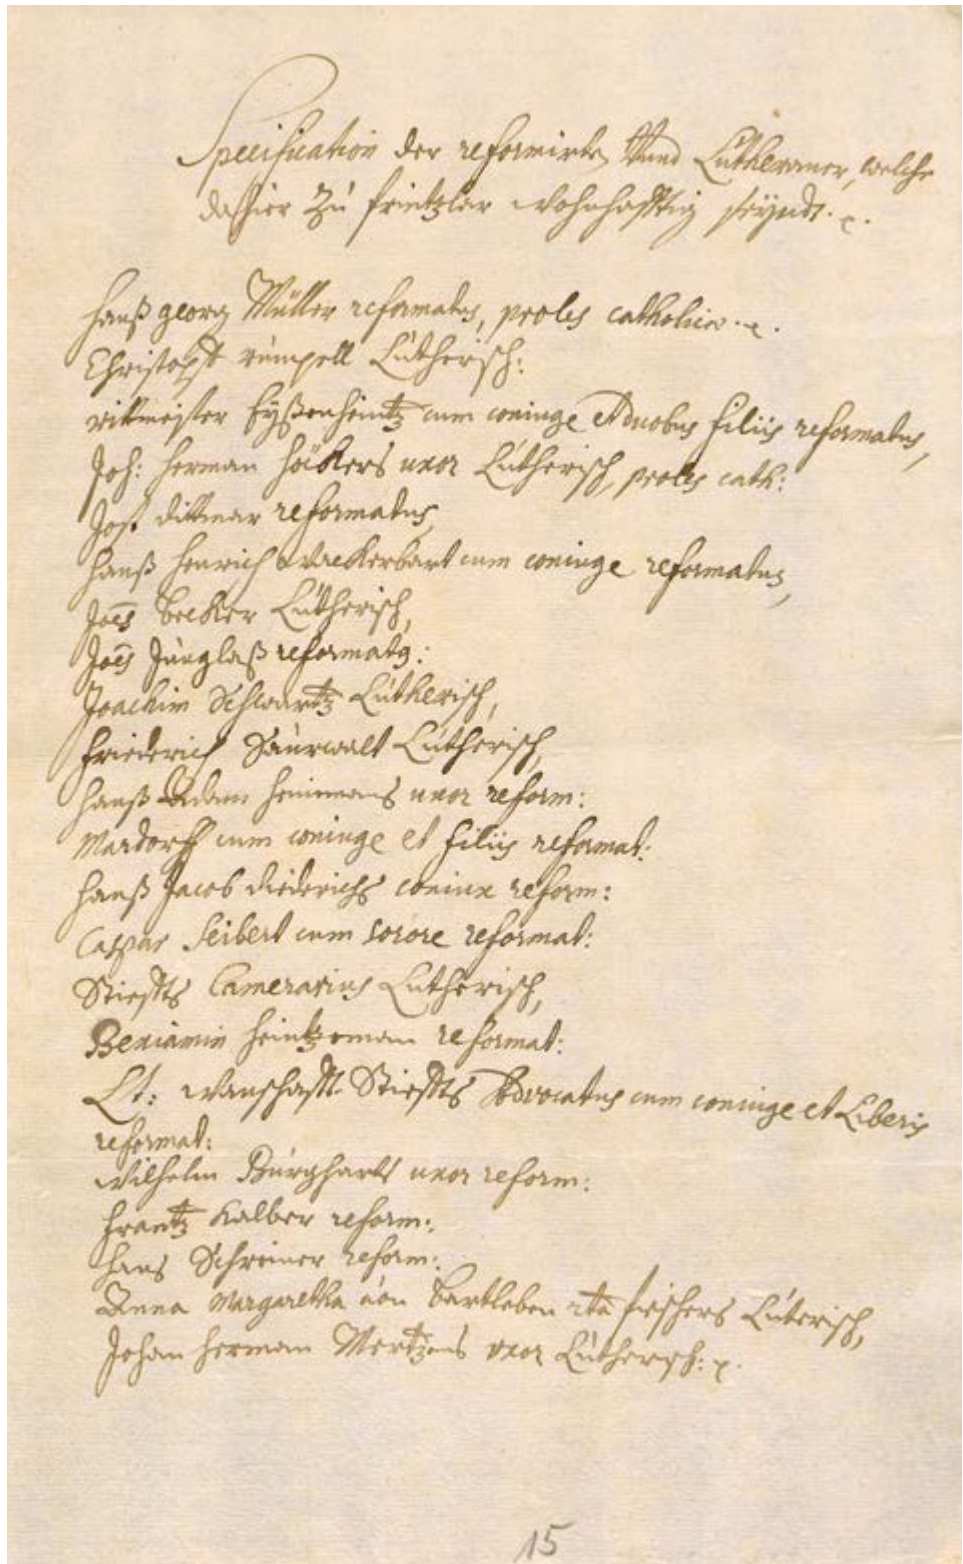 Specification der reformirten Vnnd Lutheraner, welche
dahier zu fritzlar wohnhafftig seyndt.
Hanß georg Müller reformatus, proles catholica.
Christoph rümpell Lütherisch:
rittmeister Eyßenheintz cum coniuge et duobus filiis reformatus,
Joh: Herman Häckers uxor Lütherisch, proles cath:
Jost dittmar reformatus,
Hanß Henrich Wackerbart cum coniuge reformatus,
Joēs becker Lütherisch,
Joēs Jünglaß reformatq:
Joachim Schwartz Lütherisch,
Friederich Saürwalt Lütherisch,
Hanß Adam Heinemans uxor reform:
Mardorff cum coniuge et filiis reformat:
Hanß Jacob diederichs coniux reform:
Caspar Seibert cum sorore reformat:
Stiffts Camerarius Lütherisch,
Beniamin Heintzeman reformat:
Lt: Stiffts Advocatus cum coniuge et Liberis
reformat:
Wilhelm Bürgharts uxor reform:
Frantz Kalber reform:
Hans Schreiner reform:
Anna Margaretha von Bartleben fischers Lüterisch,
Johan Herman Mertzens uxor Lütherisch:
15